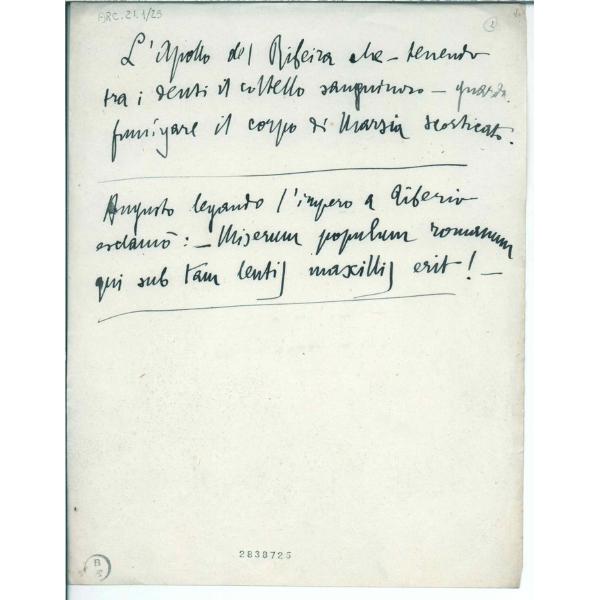 ARC.21.1/25
L'Apollo del Ribeira che - tenendo
tra i denti il coltello sanguinoso - guarda
fumigare il corpo di Marsia scorticato.
Augusto legando l'impero a Tiberio
esclamò: - Miserum populum romanum
qui sub tam lentis maxillis erit! -
2838725
B